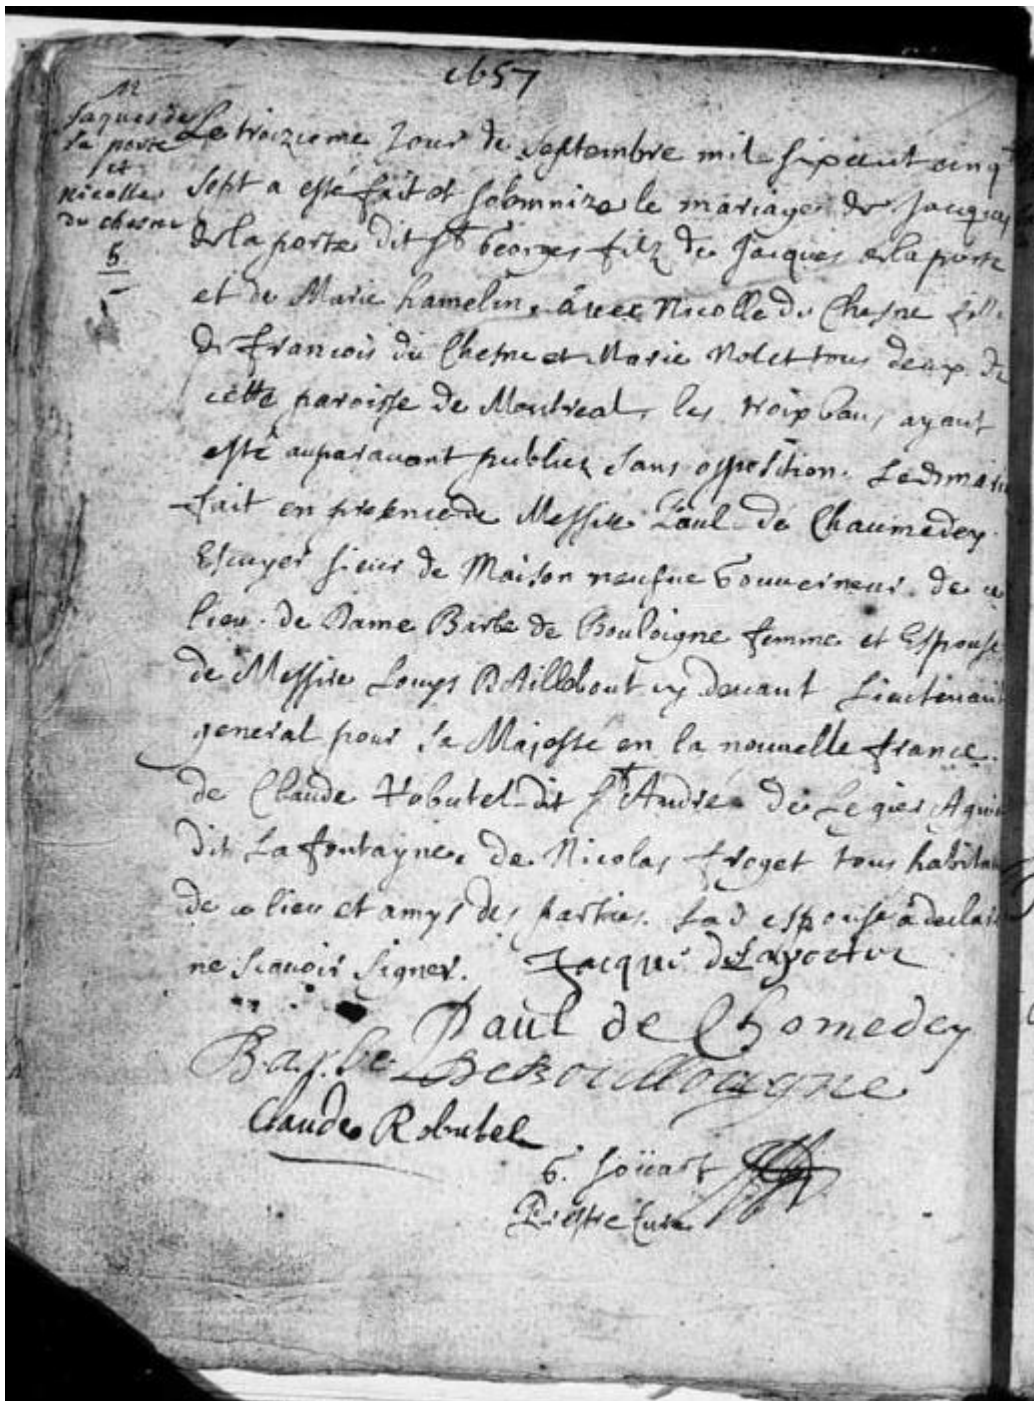 1657
M
Jaques de
la porte
et
Nicolle
du chesne
5
Le troizieme Jour de Septembre mil six cent cinqte
sept a esté fait et solemnize le mariage de Jacques
de la porte dit St Georges filz de Jacques de la porte
et de Marie hamelin, avec Nicolle du Chesne fille
de francois du Chesne et Marie Nolet tous deux de
cette paroisse de Montreal, les troix bans ayant
esté auparavant publiez sans opposition. Led mari
fait en presence de Messire Paul de Chaumedey
Escuyer sieur de Maison neufue Gouverneur de ce
lieu. de Dame Barbe de Bouloigne femme et Espouse
de Messire Louys D'Aillebout cy deuant Lieutenant
general pour sa Majesté en la nouuelle france.
de Claude Robutel dit St André de Legier Aguin
dit La fontayne, de Nicolas froget tous habitan
de ce lieu et amys des parties. Lad espouse à declaré
ne scauoir signer. Jacque deLaportte
Paul de Chomedey
Barbe De Boullongne
Claude Robutel
G. Soüart
Prestre Curé